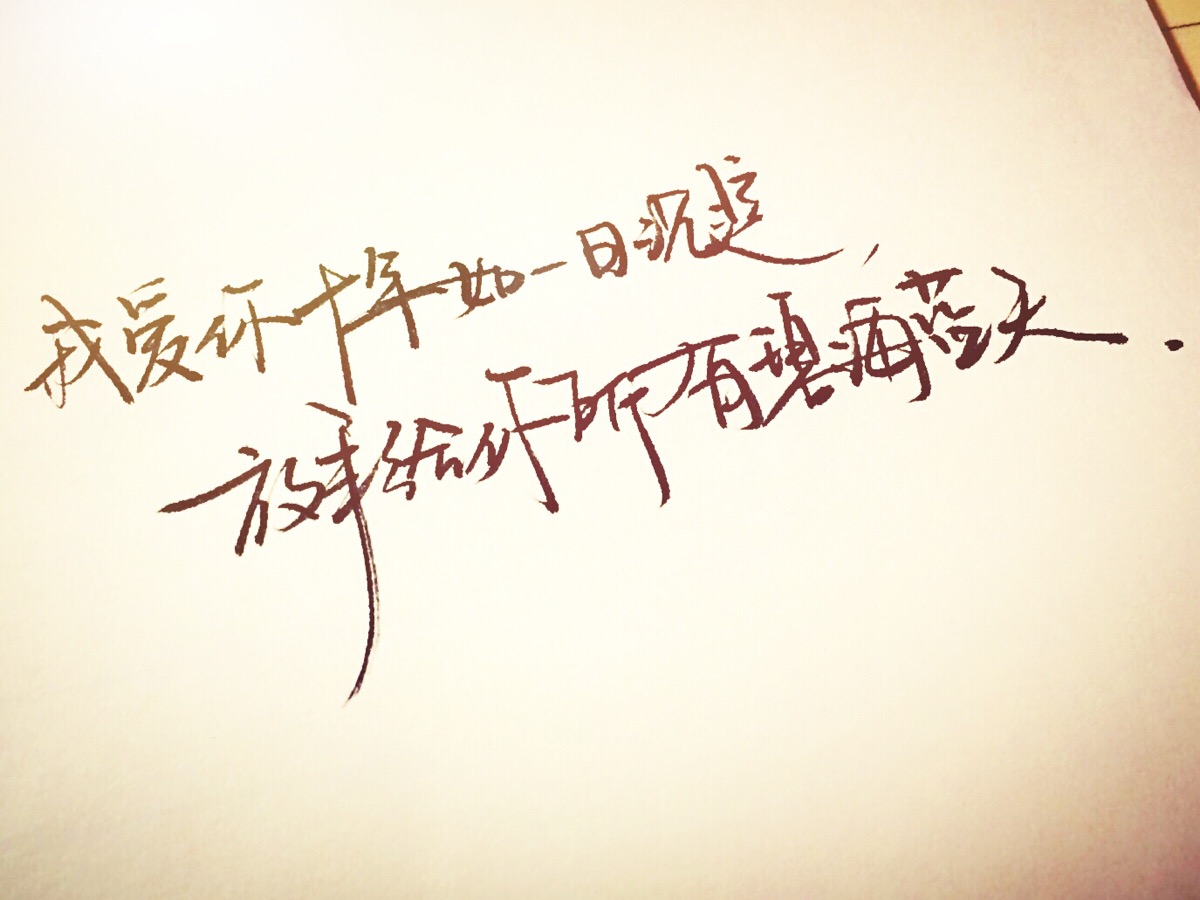 我爱你十年如一日沉淀,
放手给你所有碧海蓝天.